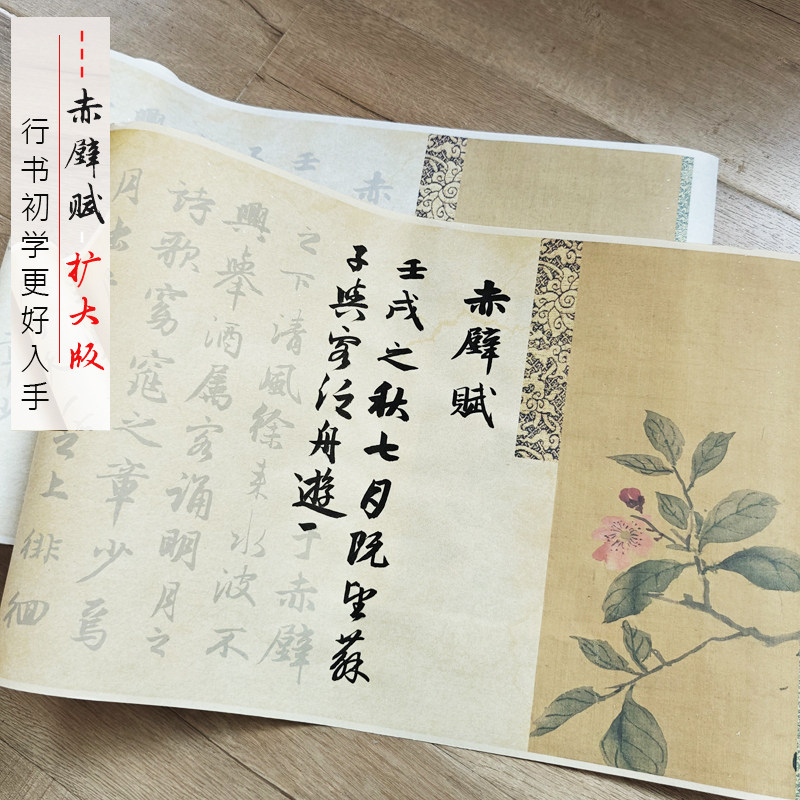 赤壁赋-扩大版
行书初学更好入手
赤壁賦
壬戌之秋七月既望蘇
子與客泛舟遊于赤壁
之下清風徐来水波不
興舉酒属客誦明月之
詩歌窈窕之章少焉
月出
之上徘徊
赤
壬
子